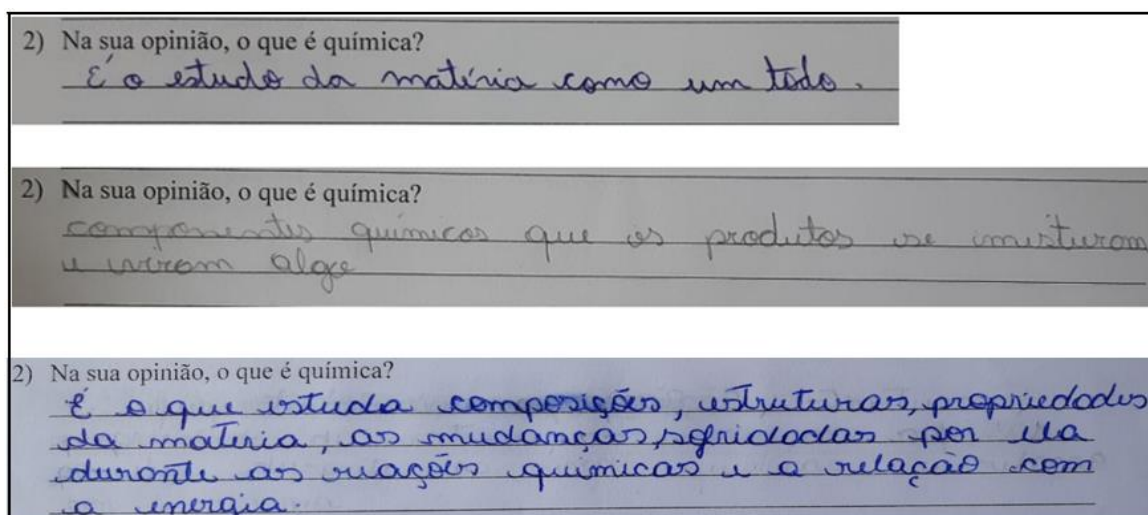 2) Na sua opinião, o que é química?
É o estudo da matéria como um todo.
2) Na sua opinião, o que é química?
componentes químicos que os produtos se misturam
e viram algo
2) Na sua opinião, o que é química?
É o que estuda composições, estruturas, propriedades
da materia, as mudanças, sofridadas por ela
durante as reações químicas e a relação com
a energia.